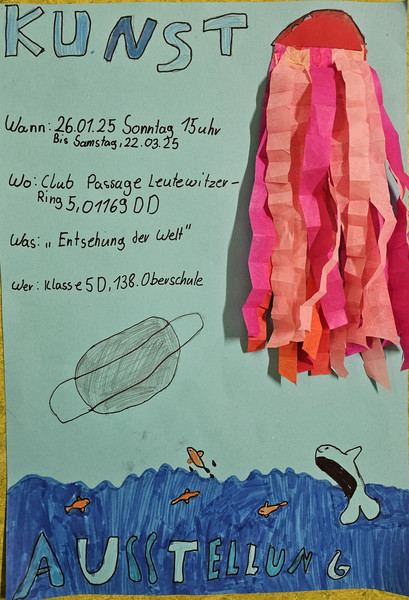 KUNST
Wann: 26.01.25 Sonntag 15uhr
Bis Samstag, 22.03.25
Wo: Club Passage Leutewitzer-
Ring 5, 01169 DD
Was: „Entsehung der Welt"
Wer: Klasse 5D, 138. Oberschule
AUSSTELLUNG